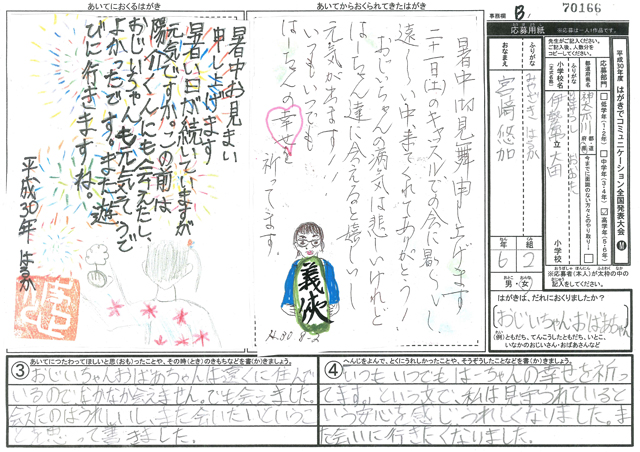 あいてにおくるはがき
あいてからおくられてきたはがき
事務欄 B 70166
暑中お見まい
申し上げます
暑い日が続いていますが
元気ですか。この前は、
陽介くんにも会えたし、
おじいちゃんも元気そうで
よかったです。また遊
びに行きますね。
平成30年 はるか
暑中御見舞申し上げます
二十一日(土)のキャッスルの会に暑い
い中来てくれてありがとう
おじいちゃんの病気は悲しいけれど
はーちゃん達に会えると嬉しいし
元気が出ます。
いつもいつでも
はーちゃんの幸せを
祈ってます。
義侠
H.30.8-2
応募用紙
※応募は一人1作品です。
平成30年度 はがきでコミュニケーション全国発表大会
先生がご記入ください。
ご記入後、人数分を
コピーしてください。
応募部門
低学年(1・2年)
中学年(3・4年)
高学年(5・6年)
都道府県名
神奈川
都・道
府・県
小学校名
(正式名称)
ふりがな
伊勢原市立 大田
小学校
ふりがな
みやざき はるか
おなまえ
宮崎 悠加
年 組
6 2
男・女
※応募者(本人)が太枠の中の
記入をしてください。
はがきは、だれにおくりましたか?
おじいちゃん・おばあちゃん
(例)ともだち、てんこうしたともだち、いとこ、
いなかのおじいさん・おばあさんなど
あいてにつたわってほしいと思(おも)ったことや、その時(とき)のきもちなどを書(か)きましょう。
③おじいちゃんおばあちゃんは遠くに住んで
いるので、なかなか会えません。でも会えました。
会えたのはうれしいし、また会いたいというこ
とを思って書きました。
へんじをよんで、とくにうれしかったことや、そうぞうしたことなどを書(か)きましょう。
④いつもいつでもはーちゃんの幸せを祈っ
てます。という文で、私は見守られていると
いう安心を感じ、うれしくなりました。ま
た会いに行きたくなりました。